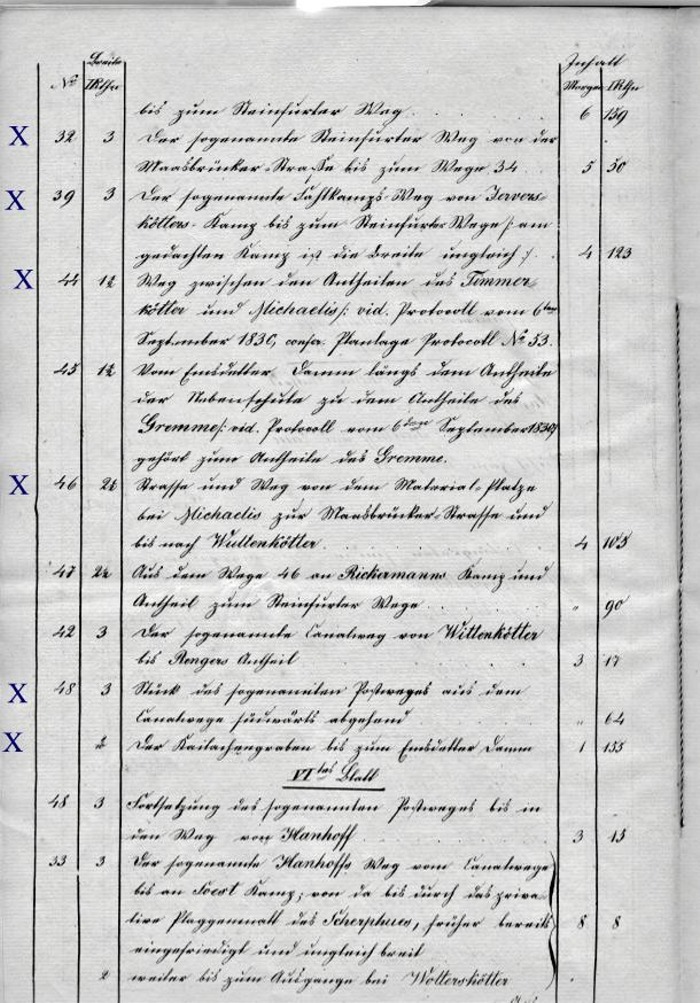 Breite Inhalt
No IRthn Morgen IRthn
bis zum Steinfurter Weg 6 159
X 32 3 Der sogenannte Steinfurter Weg von der
Maasbrücker-Strasse bis zum Wege 34 5 50
X 39 3 Der sogenannte Weg von
kötters-Kamp bis zum Steinfurter Wege /: am
gedachten Kamp ist die Breite ungleich :/ 4 123
X 44 1½ Weg zwischen den Antheilen des Temmer-
kötter und Michaelis /: vid. Protocoll vom 6ten
September 1830, confr. Planlage Protocoll No 53.
45 1½ Vom Emsdetter Damm längs dem Antheile
der Nebenschule zu dem Antheile des
Gremme /: vid. Protocoll vom 6ten September 1830/
gehört zum Antheile des Gremme.
X 46 2½ Strasse und Weg von dem Material-Platze
bei Michaelis zur Maasbrücker-Strasse und
bis nach Wuttenkötter 4 105
47 2½ Aus dem Wege 46 an Rickermanns Kamp und
Antheil zum Steinfurter Wege " 90
42 3 Der sogenannte Canalweg von Wittenkötter
bis Rengers Antheil 3 17
X 48 3 Stück des sogenannten Postweges aus dem
Canalwege südwärts abgehend " 64
X 2 Der bis zum Emsdetter Damm 1 155
VItes Blatt
48 3 Fortsetzung des sogenannten Postweges bis in
den Weg von Hanhoff 3 15
33 3 Der sogenannte Hanhoffs Weg vom Canalwege
bis an Soest Kamp; von da bis durch das priva-
tive Plaggenmatt des Scherphues, früher bereits 8 8
eingefriedigt und ungleich breit
2 weiter bis zum Ausgange bei Wolterskötter